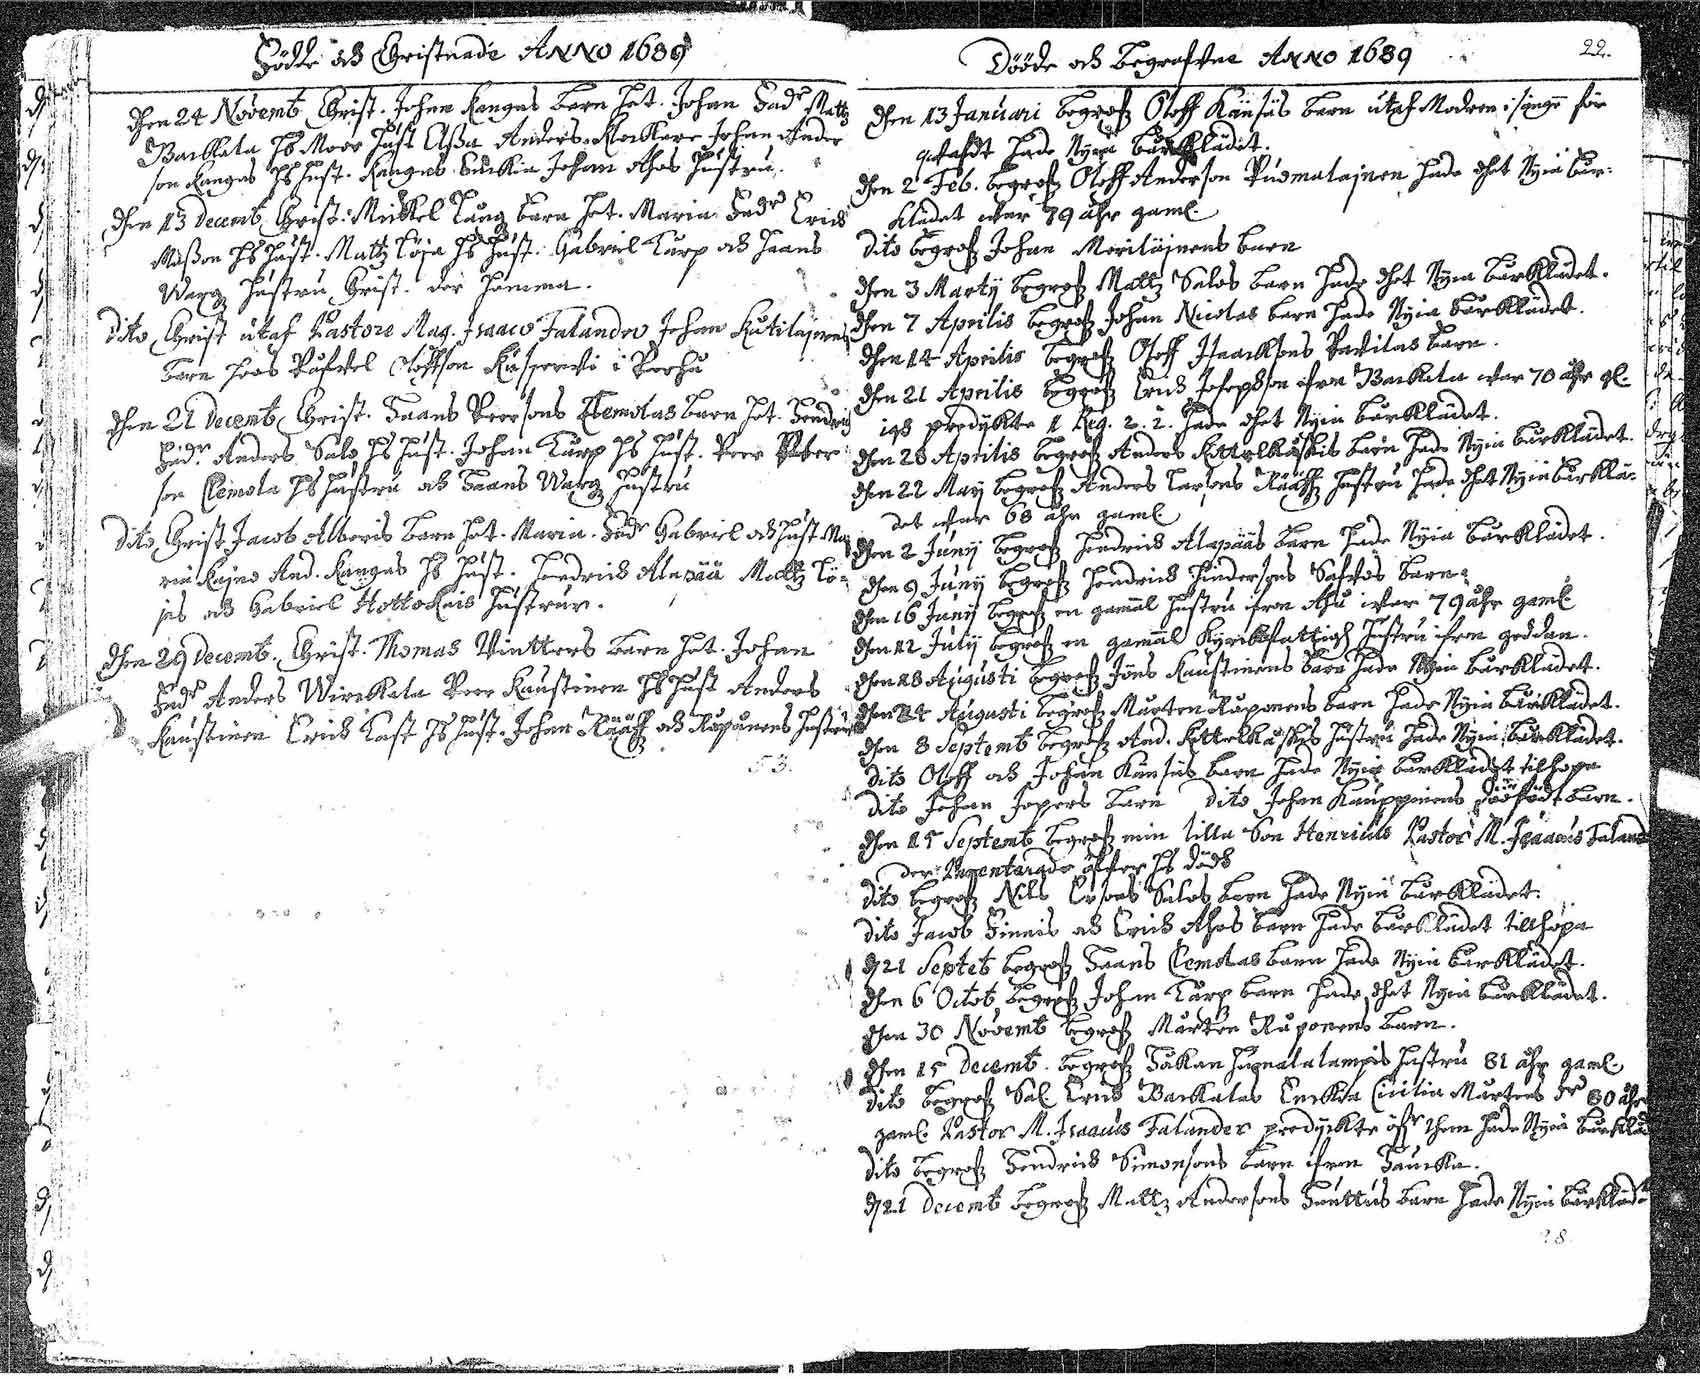 Födde och Christnade ANNO 1689
Dhen 24 Novemb Christ. Johan Kangas barn het. Johan Fadr Mattz
Barkala Hs Moor Hust Elssa Anders Klockare Johan Ander
son Kangas Hs Hust. Kangas Enckia Johan Ahos Hustru.
Dhen 13 Decemb Christ. Mickel Lang barn het. Maria Fadr Erich
Hs Hust. Mattz Löja Hs Hust. Gabriel Turp och Haans
Warg Hustru Christ. der hemma.
Dito Christ utaf Pastore Mag. Isaaco Falandro Johan Kutilajnens
barn hoos Påfvel Oloffson i Perhu
Dhen 21 Decemb Christ. Haans Peersons Clemolas barn het. Hendrich
Fadr. Anders Salo Hs Hust. Johan Turp Hs Hust. Peer Peter
son Clemola Hs Hustru och Haans Warg Hustru
Dito Christ Jacob Alberis barn het. Maria. Fadr Gabriel och Hust Ma
ria Kajno And. Kangas Hs Hust. Hendrich Alapää Mattz Lö-
jas och Gabriel Hottokais Hustrur.
Dhen 29 Decemb. Christ. Thomas Vintters barn het. Johan
Fadr Anders Wirckala Peer Kaustinen Hs Hust Anders
Kaustinen Erich Kast Hs Hust. Johan Räåff och Ruponens Hustru
53.
22.
Dööde och Begrafne ANNO 1689
Dhen 13 Januari begrofz Oloff Känsäs barn utaf Modren i sängh för
qvafdt hade Nyia bårklädit.
Dhen 2 Feb. begrofz Oloff Anderson Pudmalajnen hade dhet Nyia bår-
klädet war 79 åhr gaml.
Dito begrofz Johan Meriläjnens barn
Dhen 3 Martij begrofz Mattz Salos barn hade dhet Nyia bårklädet.
Dhen 7 Aprilis begrofz Johan Nicolas barn hade Nyia bårklädet.
Dhen 14 Aprilis begrofz Oloff Isaacksons Pavilas barn.
Dhen 21 Aprilis begrofz Erich Josephson ifrån Barkala war 70 åhr gl.
iag predykte 1 Reg. 2. 2. hade dhet Nyia bårklädet.
Dhen 28 Aprilis begrofz Anders Kottelkåskis barn hade Nyia bårklädet.
Dhen 22 May begrofz Anders Larsons Rääff Hustru hade dhet Nyia bårklä-
det war 68 åhr gaml
Dhen 2 Junij begrofz Hendrich Alapääs barn hade Nyia bårklädet.
Dhen 9 Junij begrofz Hendrich Hindersons barn.
Dhen 16 Junij begrofz en gammal Hustru ifrån Ahu war 79 åhr gaml
Dhen 12 July begrofz en gammal Kyrckfattigh Hustru ifrån geddan.
Dhen 18 Augusti begrofz Jöns Kaustinens barn hade Nyia bårklädet.
Dhen 24 Augusti begrofz Mårten Ruponens barn hade Nyia bårklädet.
Dhen 8 Septemb begrofz And. Kottelkåskis Hustru hade Nyia bårklädet.
Dito Oloff och Johan Känsäs barn hade Nyia bårklädet tilhopa
Dito Johan Jopers barn Dito Johan Kauppinens dödfödt barn.
Dhen 15 Septemb begrofz min lilla Son Henricus Pastor M. Isaacus Faland
der Parentarade effter Hs dödh
Dito begrofz Nils Ersons Salos barn hade Nyia bårklädet.
Dito Jacob Finnis och Erich Ahos barn hade bårklädet tillhopa
D 21 Septeb begrofz Haans Clemolas barn hade Nyia bårklädet.
Dhen 6 Octob begrofz Johan Turp barn hade dhet Nyia bårklädet.
Dhen 30 Novemb begrofz Mårten Ruponens barn.
Dhen 15 Decemb. begrofz Håkan Hustru 81 åhr gaml.
Dito begrofz Sal Erich Barkalas Enckia Cicilia Mårtens dr 80 åhr
gaml. Pastor M. Isaacus Falander predyckte öfr them hade Nyia bårkläd
Dito begrofz Hendrich Simonsons barn ifrån
D 21 Decemb begrofz Mattz Andersons barn hade Nyia bårkläd
28.